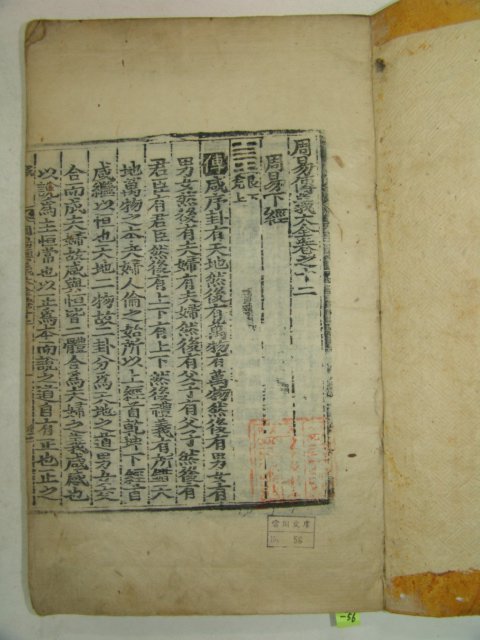 周易傳義大全卷之十二
周易下經
艮下
上
傳咸序卦有天地然後有萬物有萬物然後有男女有
男女然後有夫婦有夫婦然後有父子有父子然後有
君臣有君臣然後有上下有上下然後禮義有所錯天
地萬物之本夫婦人倫之始所以上經首乾坤下經首
咸繼以恒也天地二物故二卦分爲天地之道男女交
合而成夫婦故咸與恒皆二體合爲夫婦之義咸感也
以說爲主恒常也以正爲本而說之道自有正也正之
川文庫
56
-56